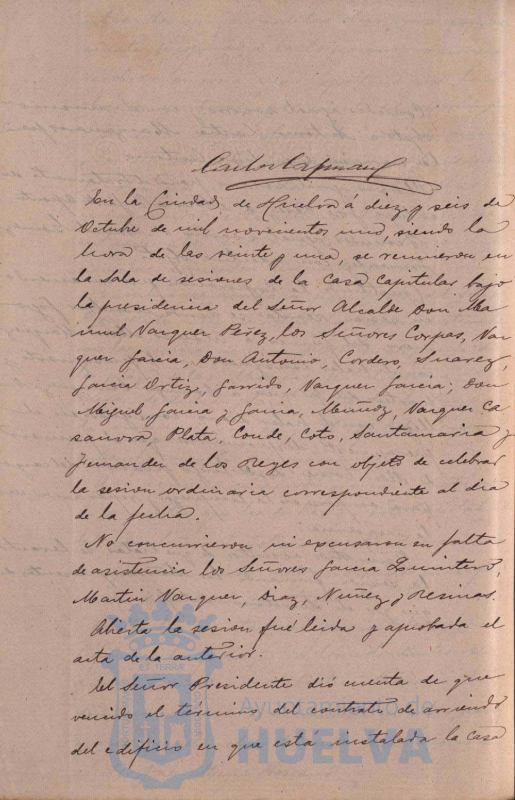 En la Ciudad de Huelva á diez y seis de
Octubre de mil novecientos uno, siendo la
hora de las veinte y una, se reunieron en
la Sala de sesiones de la casa capitular bajo
la presidencia del Señor Alcalde Don Ma
nuel Vazquez Pérez, los Señores Corpas, Vaz
quez Garcia, Don Antonio, Cordero, Suarez,
Garcia Ortiz, Garrido, Vazquez Garcia, Don
Miguel, Garcia y Garcia, Muñoz, Vazquez Ca
sanova, Plata, Conde, Coto, Santamaria y
Fernandez de los Reyes con objeto de celebrar
la sesion ordinaria correspondiente al dia
de la fecha.
No concurrieron ni excusaron su falta
de asistencia los Señores Garcia Quintero,
Martin Vazquez, Diaz, Nuñez y Resinas.
Abierta la sesion fué leida y aprobada el
acta de la anterior.
El Señor Presidente dió cuenta de que
vencido el término del contrato de arriendo
del edificio en que está instalada la casa
Ayuntamiento de
HUELVA